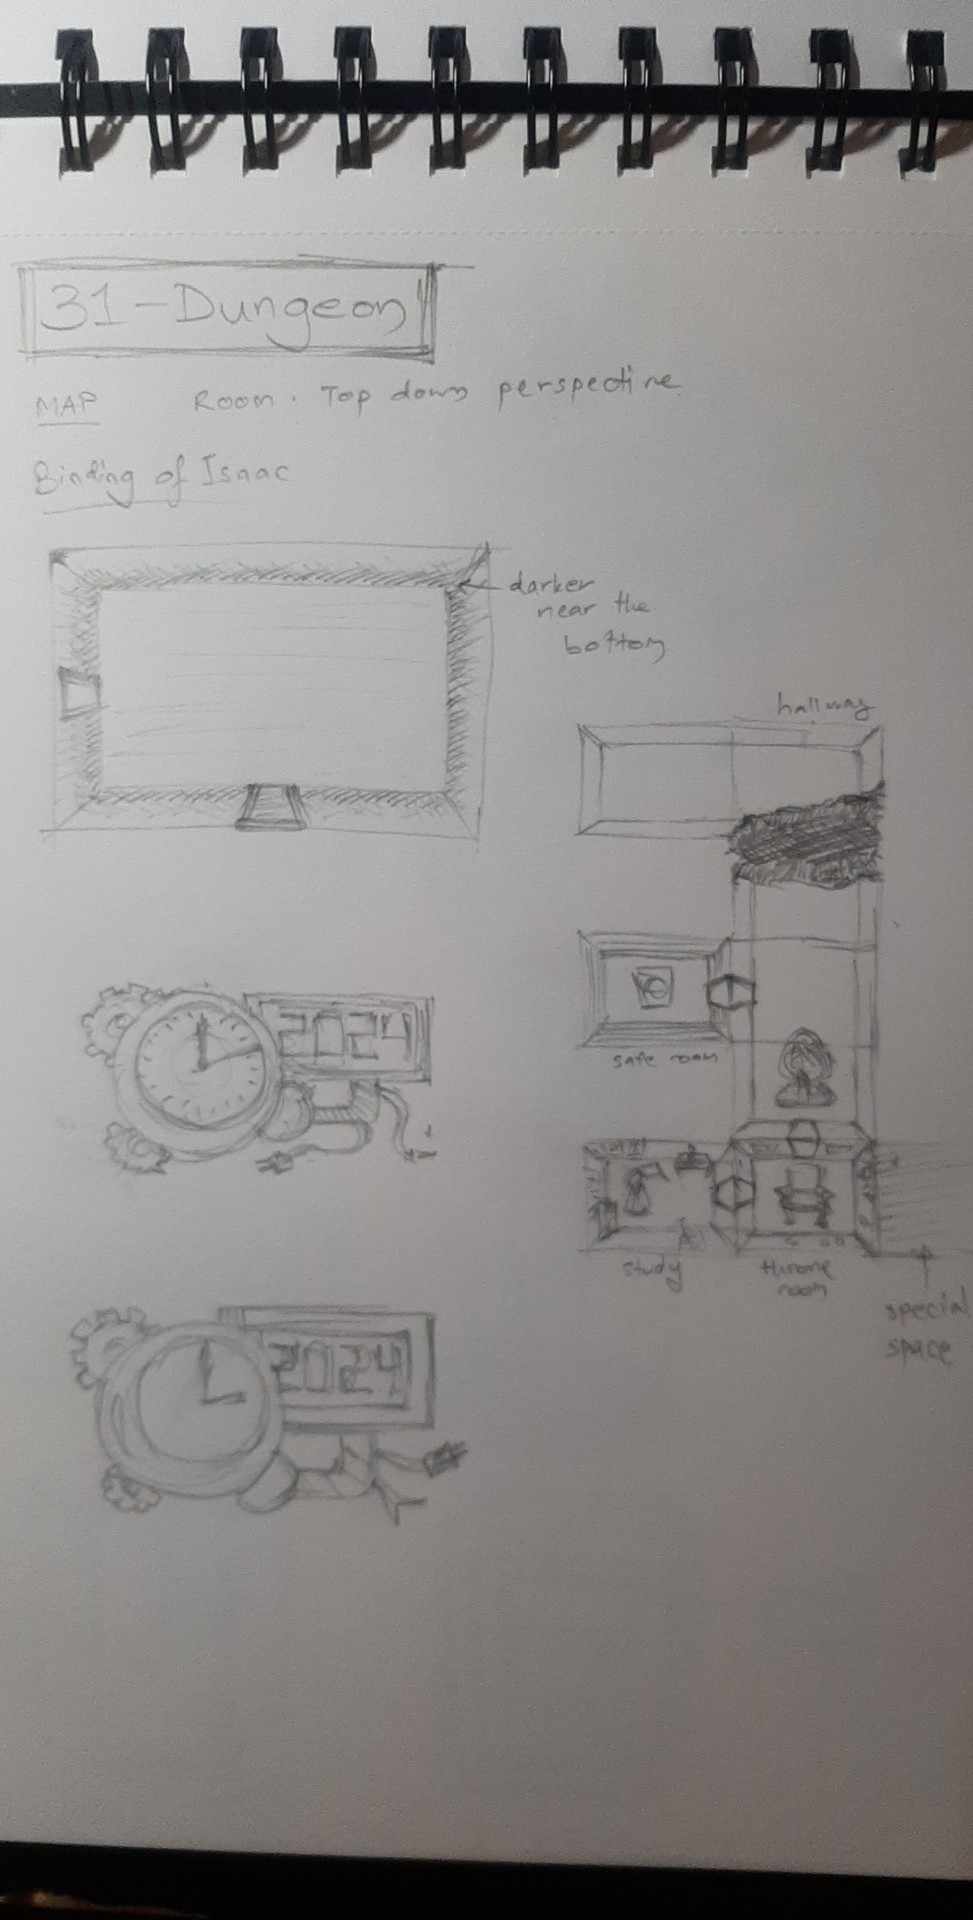 31-Dungeon
MAP Room. Top down perspective
Binding of Isaac
darker
near the
bottom
hallway
2024
safe room
study
throne
room
special
space
2024